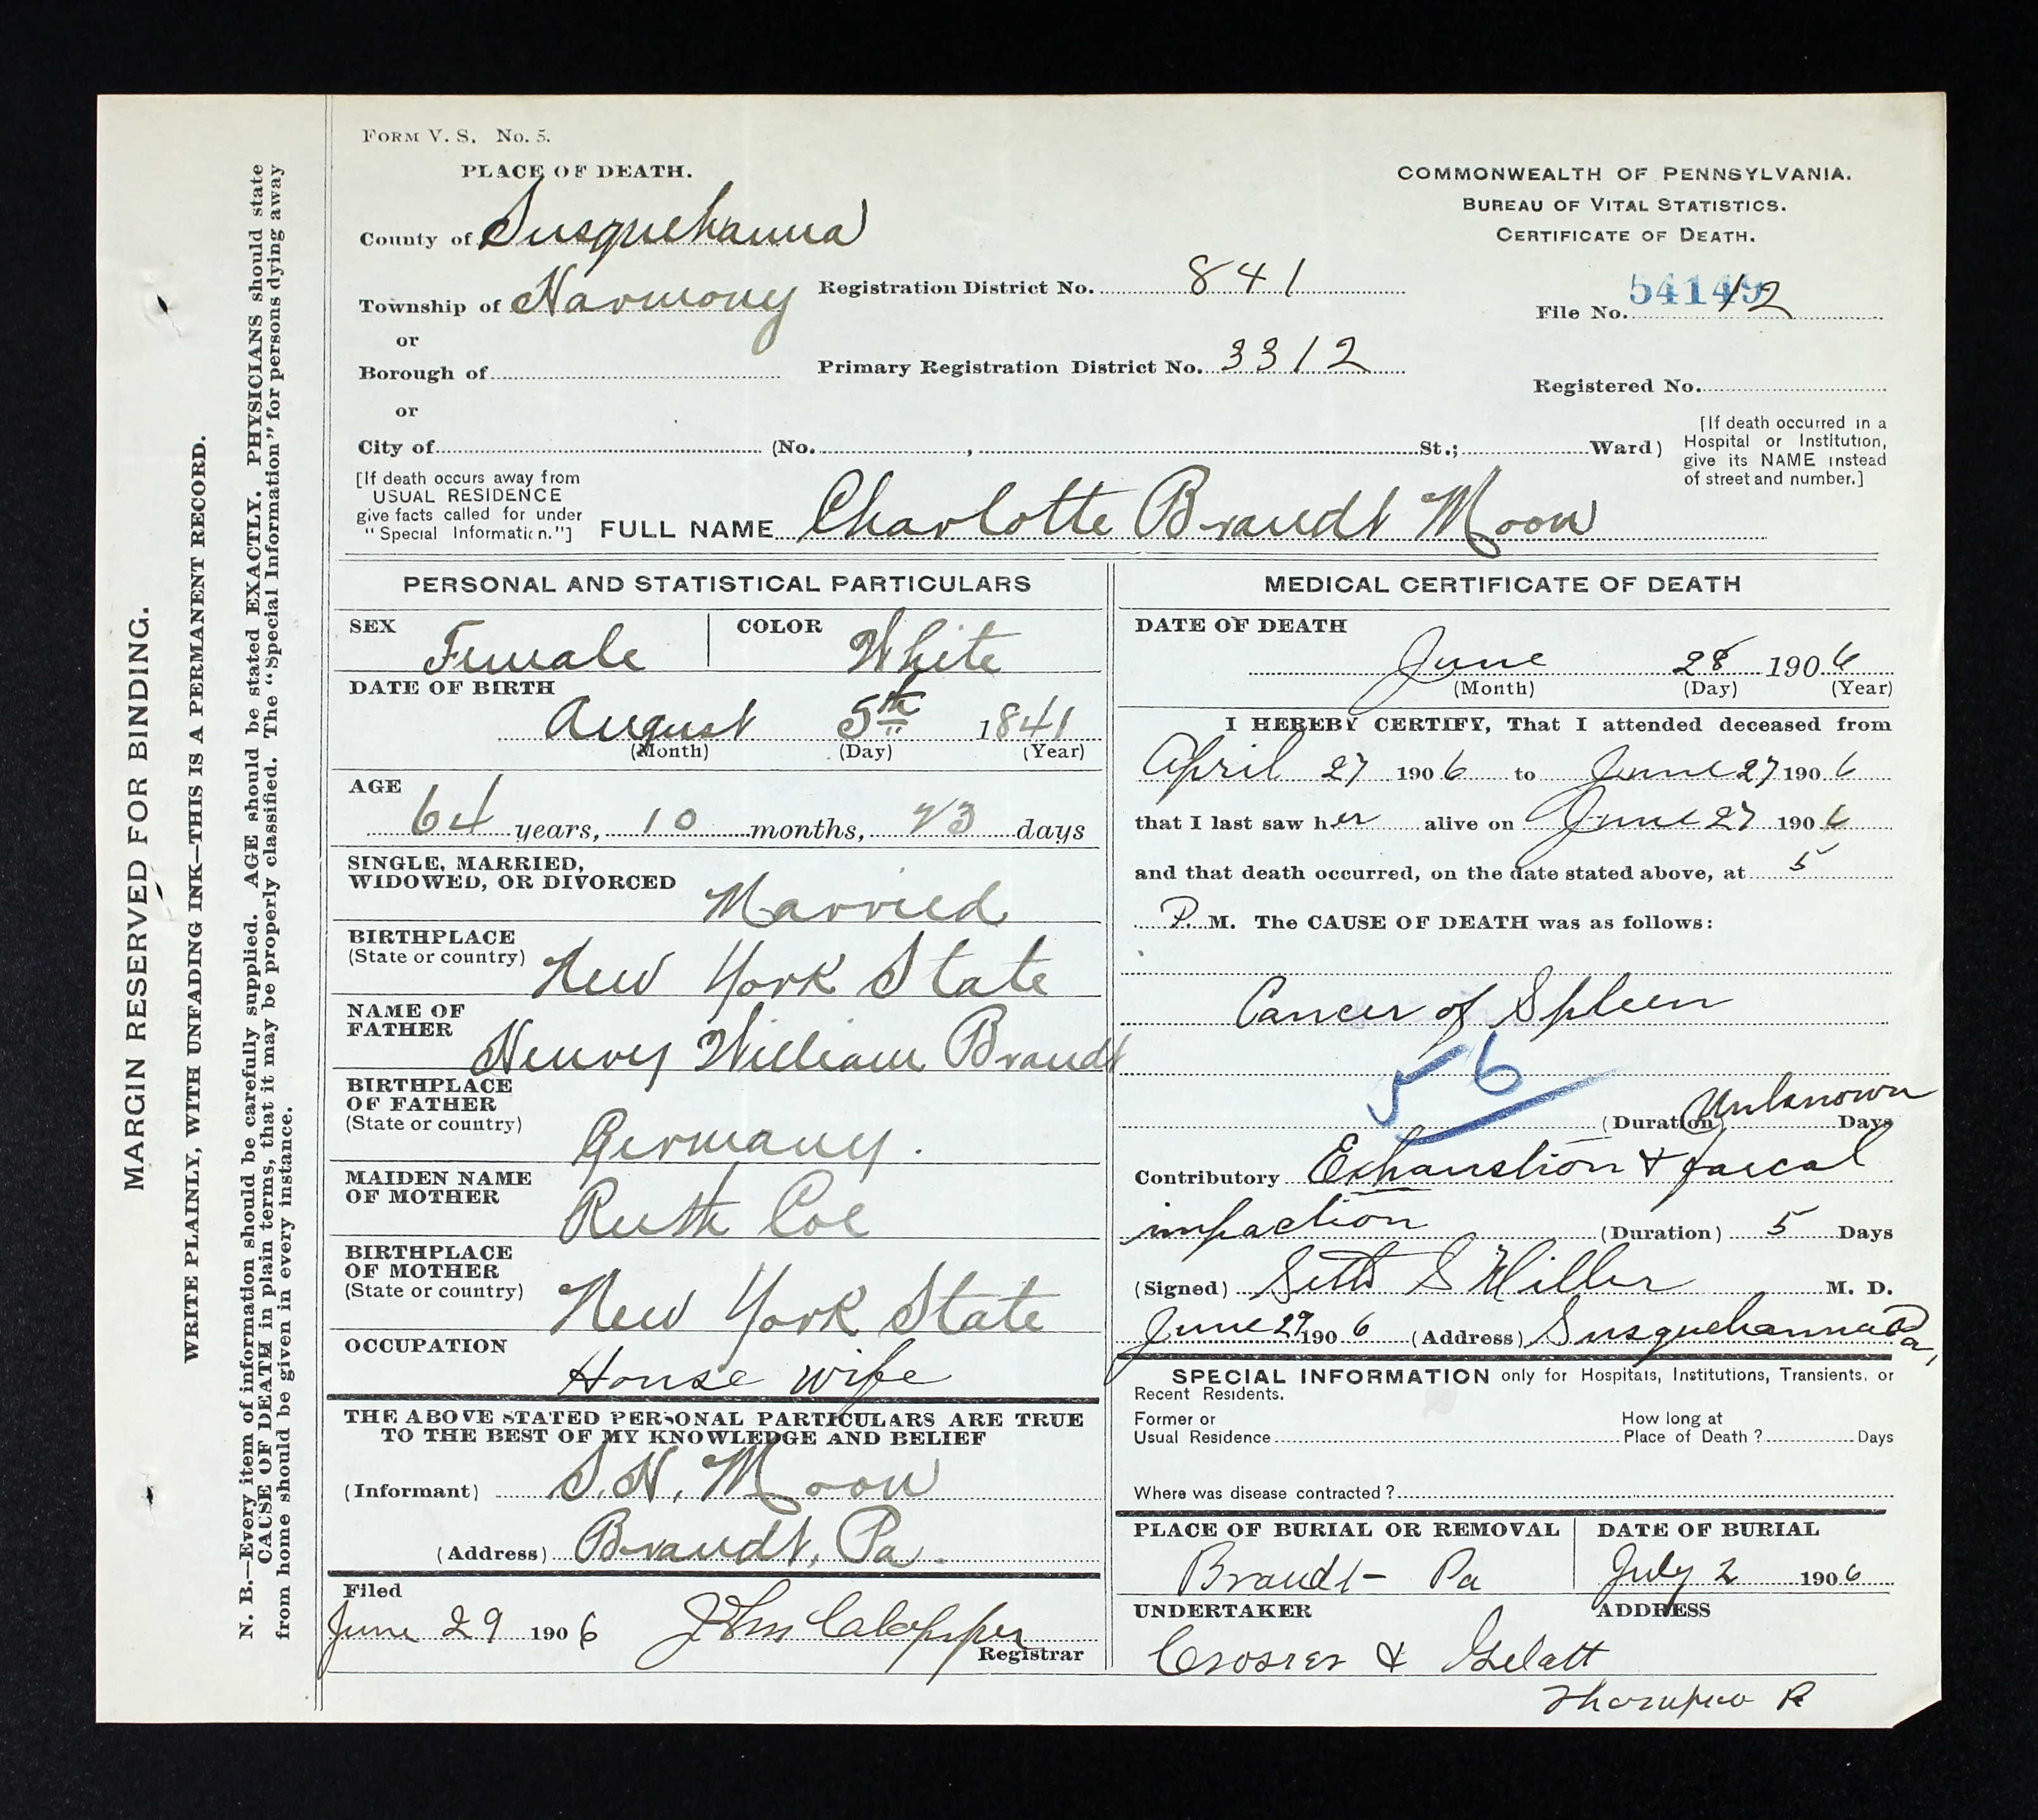 FORM V. S. No. 5.
PLACE OF DEATH.
County of Susquehanna
Township of Harmony
or
Borough of
or
City of (No. , St.; Ward)
Registration District No. 841
Primary Registration District No. 3312
COMMONWEALTH OF PENNSYLVANIA.
BUREAU OF VITAL STATISTICS.
CERTIFICATE OF DEATH.
File No. 12
Registered No.
[If death occurred in a
Hospital or Institution,
give its NAME instead
of street and number.]
[If death occurs away from
USUAL RESIDENCE
give facts called for under
"Special Information."]
FULL NAME Charlotte Brandt Moon
PERSONAL AND STATISTICAL PARTICULARS
SEX Female COLOR White
DATE OF BIRTH
August 5th 1841
(Month) (Day) (Year)
AGE
64 years, 10 months, 23 days
SINGLE, MARRIED,
WIDOWED, OR DIVORCED Married
BIRTHPLACE
(State or country) New York State
NAME OF
FATHER Henry William Brandt
BIRTHPLACE
OF FATHER
(State or country) Germany.
MAIDEN NAME
OF MOTHER Ruth Coe
BIRTHPLACE
OF MOTHER
(State or country) New York State
OCCUPATION
House wife
THE ABOVE STATED PERSONAL PARTICULARS ARE TRUE
TO THE BEST OF MY KNOWLEDGE AND BELIEF
(Informant) S. H. Moon
(Address) Brandt, Pa.
Filed
June 29 1906
Registrar
MEDICAL CERTIFICATE OF DEATH
DATE OF DEATH
June 28 1906
(Month) (Day) (Year)
I HEREBY CERTIFY, That I attended deceased from
April 27 1906 to June 27 1906
that I last saw her alive on June 27 1906
and that death occurred, on the date stated above, at 5
P. M. The CAUSE OF DEATH was as follows:
Cancer of Spleen
56
(Duration) Unknown Days
Contributory Exhaustion & faecal
impaction (Duration) 5 Days
(Signed) Seth S Miller M. D.
June 29 1906 (Address) Susquehanna Pa,
SPECIAL INFORMATION only for Hospitals, Institutions, Transients, or
Recent Residents.
Former or
Usual Residence
How long at
Place of Death? Days
Where was disease contracted?
PLACE OF BURIAL OR REMOVAL
Brandt- Pa
DATE OF BURIAL
July 2 1906
UNDERTAKER
Crosier & Gelatt
ADDRESS
Thompson Pa
MARGIN RESERVED FOR BINDING.
WRITE PLAINLY, WITH UNFADING INK—THIS IS A PERMANENT RECORD.
N. B.—Every item of information should be carefully supplied. AGE should be stated EXACTLY. PHYSICIANS should state
CAUSE OF DEATH in plain terms, that it may be properly classified. The "Special Information" for persons dying away
from home should be given in every instance.